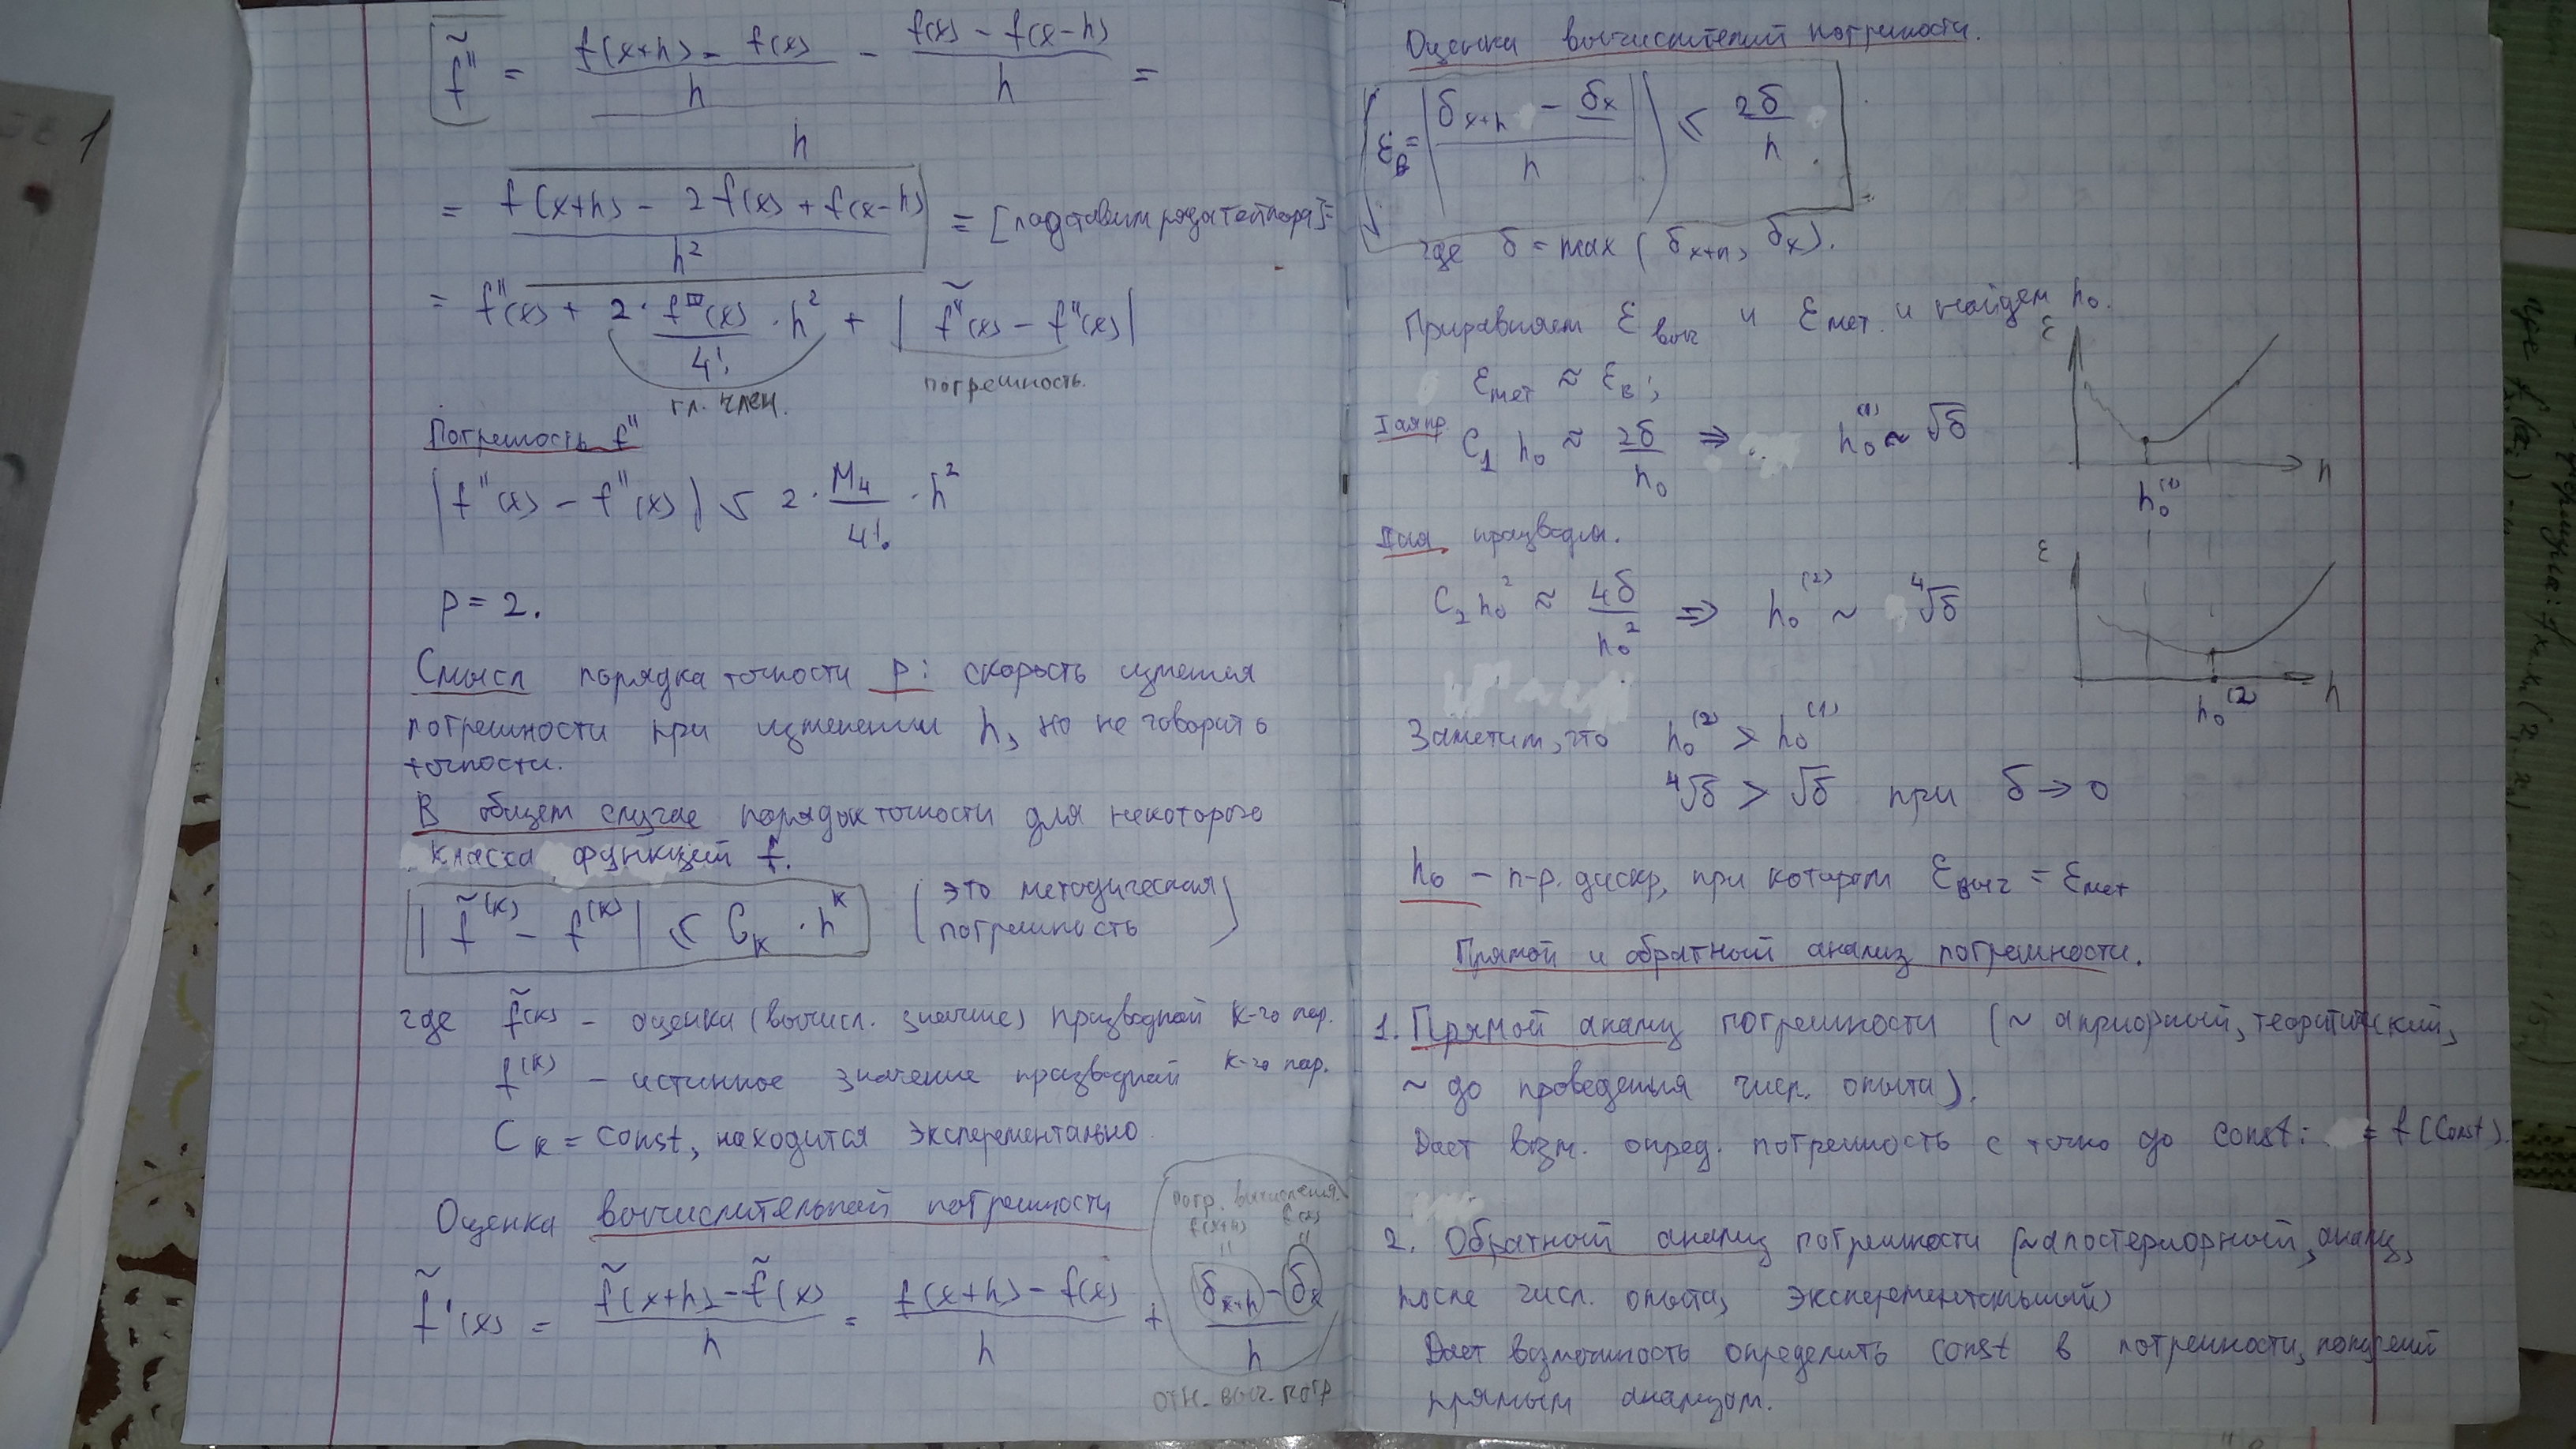 f̃'' = ((f(x+h) - f(x))/h - (f(x) - f(x-h))/h)/h =
= (f(x+h) - 2f(x) + f(x-h))/h² = [подставим ряды Тейлора] =
= f''(x) + 2·f(x)/4!·h² + |f̃''(x) - f''(x)|
гл. член. погрешность.
Погрешность f''
|f''(x) - f''(x)| ≤ 2·M₄/4!·h²
p = 2.
Смысл порядка точности p: скорость
погрешности при изменении h, но не говорит о
точности.
В общем случае порядок точности для некоторого
класса функций f.
|f̃⁽ᴷ⁾ - f⁽ᴷ⁾| ≤ Cₖ·hᴷ (это методическая погрешность)
где f̃⁽ᴷ⁾ - оценка (вычисл. значие) призводной K-го пор.
f⁽ᴷ⁾ - истинное значение призводной K-го пор.
Cₖ = const, находится эксперементально.
Оценка вычислительной погрешности
погр. вычисления.
f(x+h) f(x)
f̃'(x) = (f̃(x+h) - f̃(x))/h = (f(x+h) - f(x))/h + (δₓ₊ₕ - δₓ)/h
отн. выч. погр
Оценка погрешности.
εв = |(δₓ₊ₕ - δₓ)/h| ≤ 2δ/h
где δ = max(δₓ₊ₕ, δₓ).
Приравняем εвыч и εмет. и найдем h₀.
εмет ≈ εв;
C₁h₀ ≈ 2δ/h₀ ⇒ h₀⁽¹⁾ ~ √δ
ε h h₀⁽¹⁾
C₂h₀² ≈ 4δ/h₀² ⇒ h₀⁽²⁾ ~ ⁴√δ
ε h h₀⁽²⁾
Заметим, что h₀⁽²⁾ > h₀⁽¹⁾
⁴√δ > √δ при δ → 0
h₀ - п-р. дискр, при котором εвыч = εмет
Прямой и обратный анализ погрешности.
1. Прямой анализ погрешности (~ априорный, теоритический,
~ до проведения числ. опыта).
Дает возм. опред. погрешность с точно до const: = f(const).
2. Обратный анализ погрешности (~апостериорный, анализ,
после числ. опыта, эксперементальный)
Дает возможность определить const в погрешности,
прямым анализом.